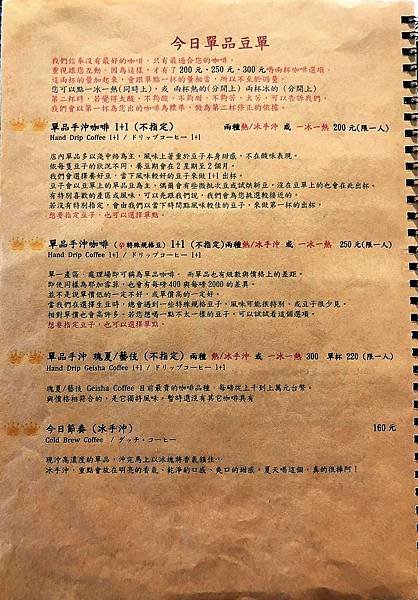 今日單品豆單
我們信奉沒有最好的咖啡，只有最適合您的咖啡。
重視跟您互動，因為這樣，才有了 200元、250元、300元喝兩杯咖啡選項。
這兩杯的量加起來，會跟單點一杯的量相當，所以不至於過量。
您可以點一冰一熱(同時上)，或 兩杯熱的(分開上) 兩杯冰的 (分開上)
第二杯時，若覺得太酸、不夠酸、不夠甜、不夠苦、太苦，可以告訴我們，
我們會以第一杯為您出的咖啡為標準，做為第二杯修正的依據。
單品手沖咖啡 1+1 (不指定) 兩種熱/冰手沖 或 一冰一熱 200元(限一人)
Hand Drip Coffee 1+1 / ドリップコーヒー 1+1
店內單品多以淺中焙為主，風味上著重於豆子本身甜感，不在酸味表現。
依每隻豆子的狀況不同，養豆期會在 2 星期至 2 個月。
我們會選擇養好豆，當下風味較好的豆子來做 1+1 出杯。
豆子會以豆單上的單品豆為主，偶爾會有些微批次豆或試烘新豆，沒在豆單上的也會在此出杯。
有特別喜歡的產區或風味，可以先跟我們說，我們會為您挑選較接近的。
若沒有特別指定，會由我們以當下時間點風味較佳的豆子，來做第一杯的出杯，
想要指定豆子，也可以選擇單點。
單品手沖咖啡 (特殊規格豆) 1+1 (不指定)兩種熱/冰手沖 或 一冰一熱 250元(限一人)
Hand Drip Coffee 1+1 / ドリップコーヒー 1+1
單一產區、處理場即可稱為單品咖啡。 而單品也有級數與價格上的差距。
即使同樣為耶加雪菲，也會有每磅 400 與每磅 2000 的差異。
並不是說單價低的一定不好，或單價高的一定好。
當我們在選擇生豆時，總會遇到一些特殊規格豆子，風味可能很特別，或豆子很少見。
相對單價也會高許多。若您想喝一點不太一樣的豆子，可以試試看這個選項。
想要指定豆子，也可以選擇單點。
單品手沖 瑰夏/藝伎 (不指定) 兩種 熱/冰手沖 或 一冰一熱 300 單杯 220 (限一人)
Hand Drip Geisha Coffee 1+1 / ドリップコーヒー 1+1
瑰夏/藝伎 Geisha Coffee 目前最貴的咖啡品種，每磅從上千到上萬元台幣。
與價格相符合的，是它獨特風味。暫時還沒有其它咖啡具有
今日節奏 (冰手沖) 160 元
Cold Brew Coffee / ダッチ・コーヒー
現沖高濃度的單品，沖完馬上以冰塊將香氣鎖住…
冰手沖，重點會放在明亮的香氣、乾淨的口感、爽口的甜感。夏天喝這個，真的很棒阿！